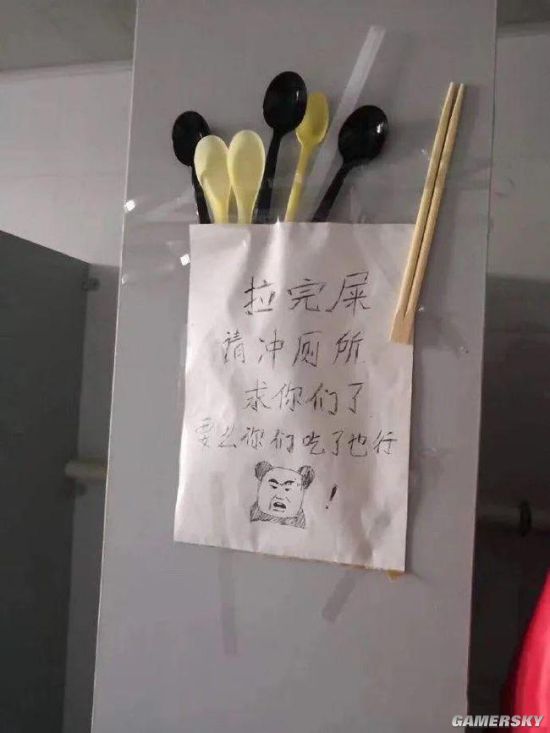 拉完屎
请冲厕所
求你们了
要么你们吃了也行
!
GAMERSKY